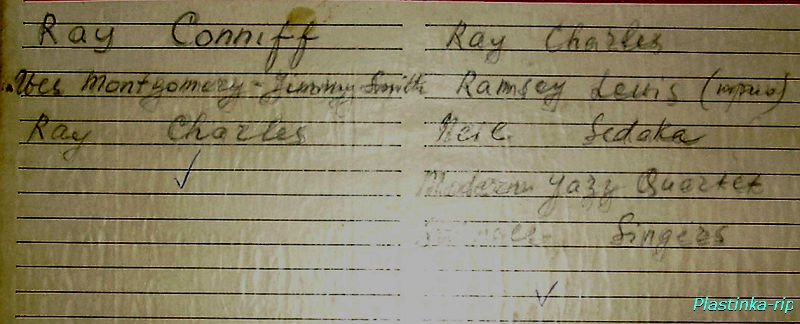 Ray Conniff
Wes Montgomery-Jimmy Smith
Ray Charles
Ray Charles
Ramsey Lewis (трио)
Neil Sedaka
Modern Jazz Quartet
Singers
Plastinka-rip